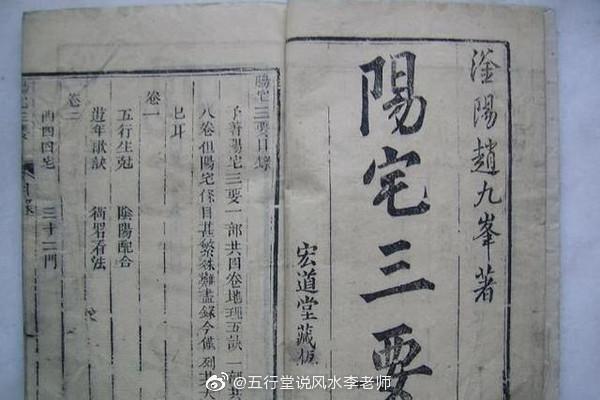 滏陽趙九峯著
陽宅三要
宏道堂藏板
陽宅三要目錄
予著陽宅三要一部共四卷地理五訣一部共
八卷但陽宅條目甚繁殊難盡錄今僅列大
已耳
卷一
五行生剋 陰陽配合
遊年歌訣 衙署看法
卷二
西四四宅 三十二門
陽宅三要 目錄
@五行堂说风水李老师